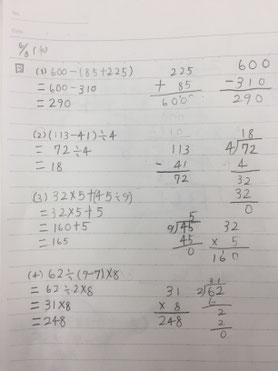 6/8 (水)
5 (1) 600-(85+225)
= 600-310
= 290
225
+ 85
600
600
-310
290
(2) (113-41)÷4
= 72÷4
= 18
113
- 41
72
18
4)72
4
32
32
0
(3) 32×5+(45÷9)
= 32×5+5
= 160+5
= 165
5
9)45
45
0
32
× 5
160
(4) 62÷(9-7)×8
= 62÷2×8
= 31×8
= 248
31
× 8
248
31
2)62
6
2
2
0